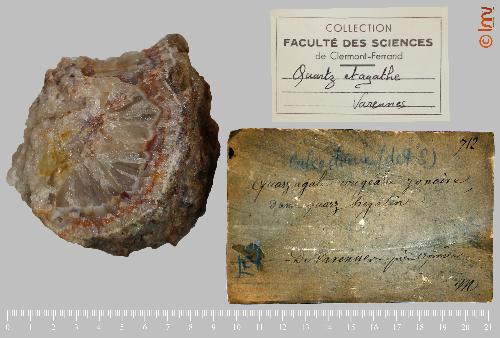 COLLECTION
FACULTÉ DES SCIENCES
de Clermont-Ferrand
Quartz et agathe
Varennes
© lmv
712
Quarz agate rougeâtre zonaire
dans quarz hyalin
De Varennes, près
0 1 2 3 4 5 6 7 8 9 10 11 12 13 14 15 16 17 18 19 20 21